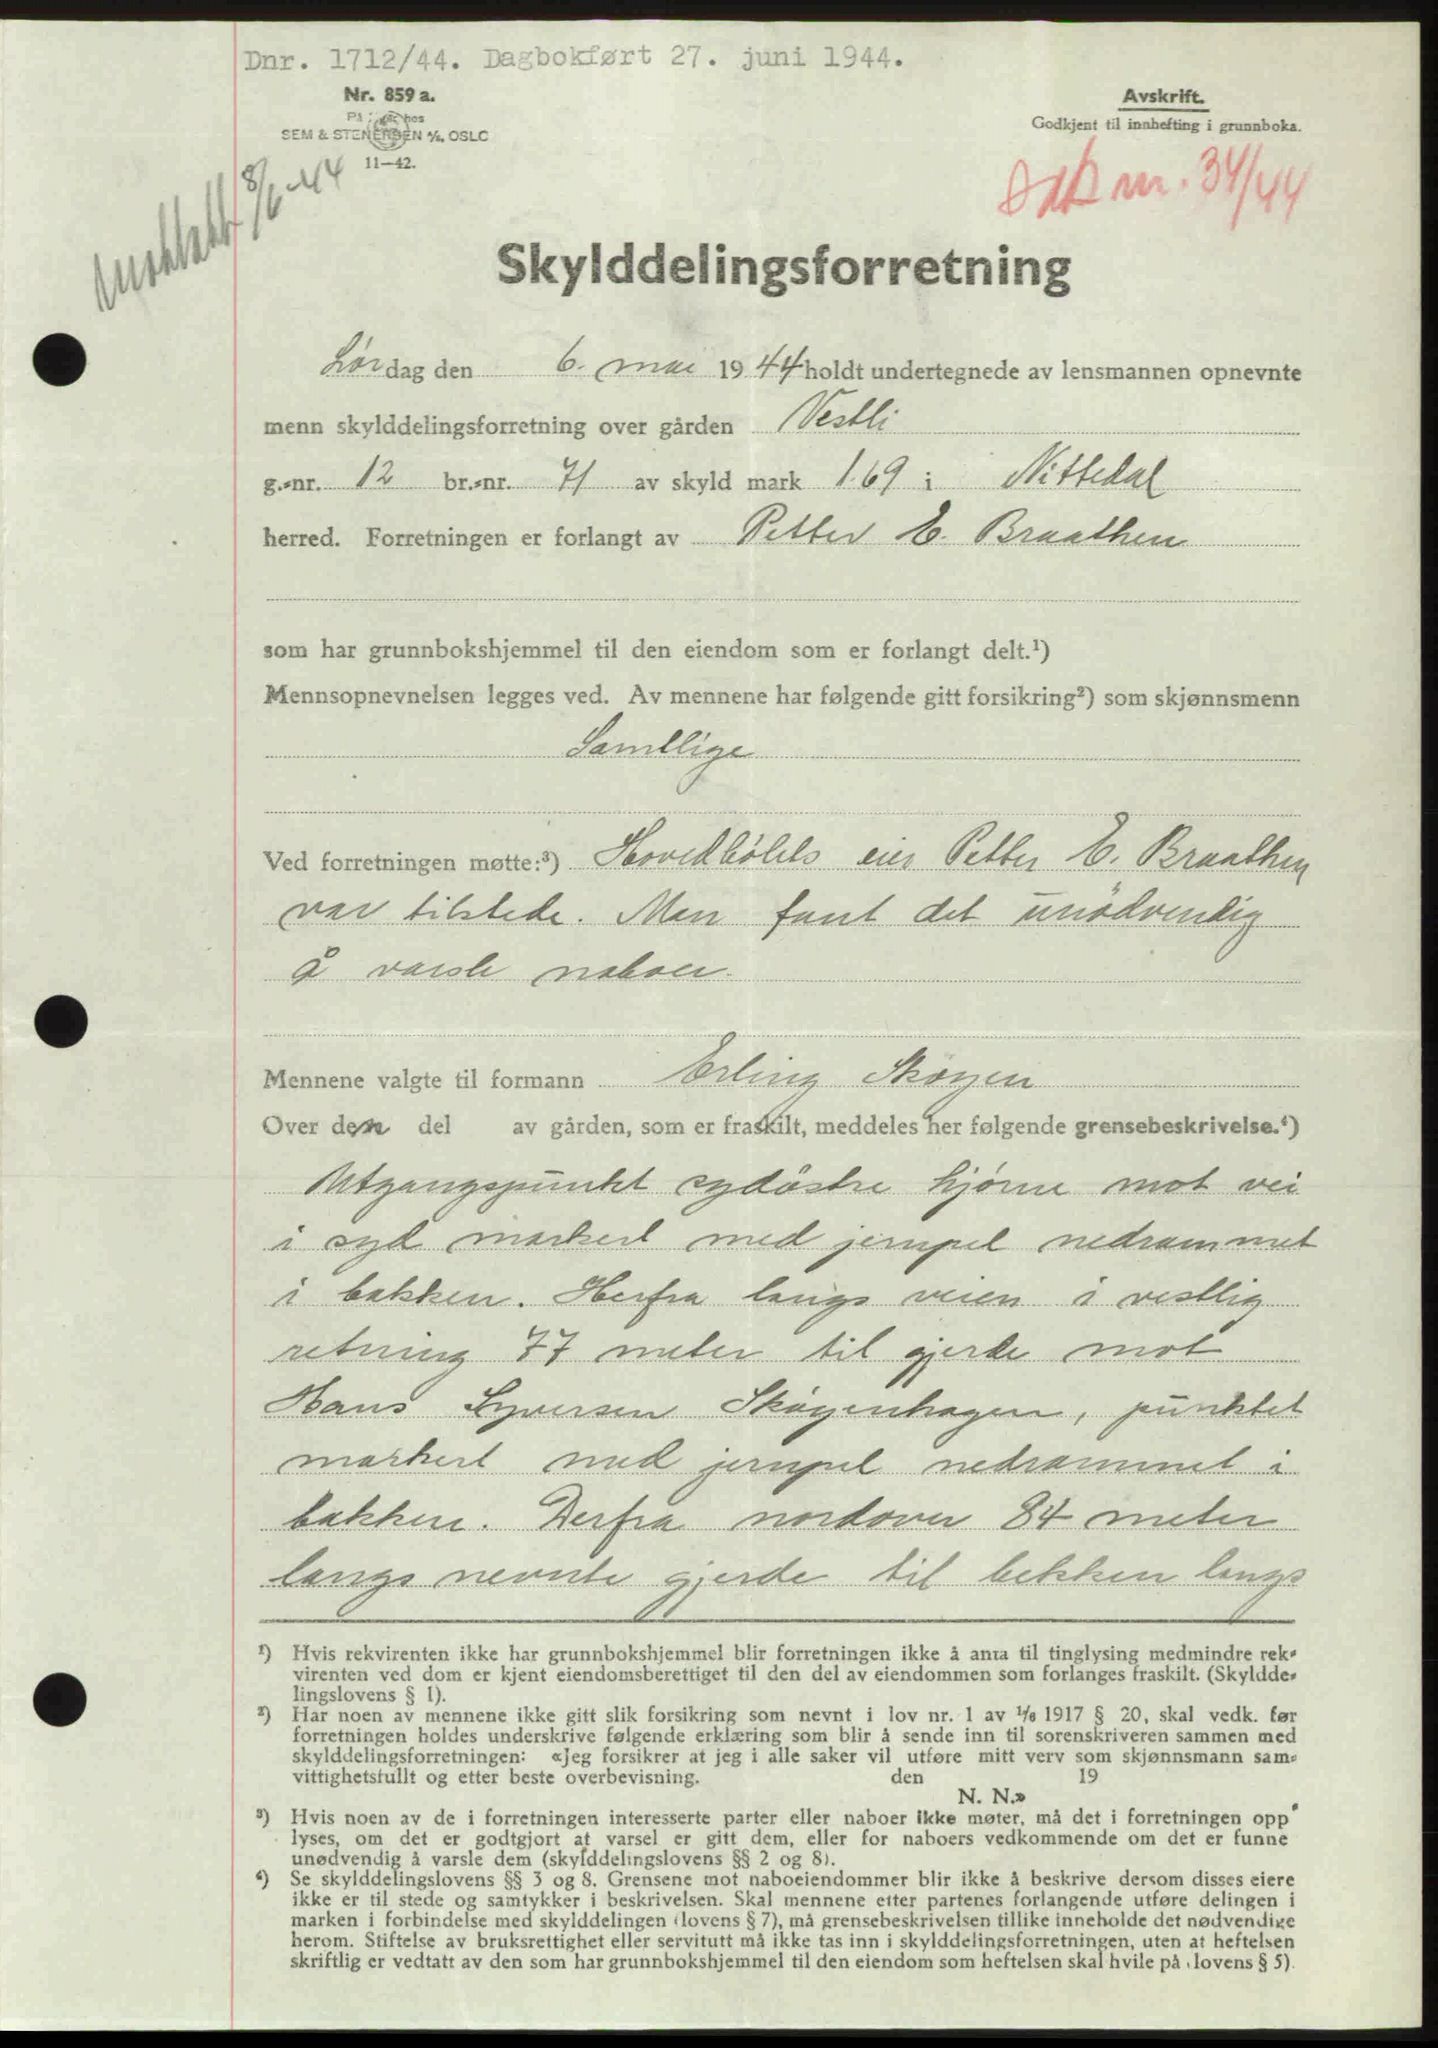 Dnr. 1712/44. Dagbokført 27. juni 1944.
Nr. 859 a.
På hos
SEM & STENERSEN A/S, OSLO
11—42.
Avskrift.
Godkjent til innhefting i grunnboka.
mottatt 8/6-44
nr. 34/44
Skylddelingsforretning
Lørdag den 6. mai 1944 holdt undertegnede av lensmannen opnevnte
menn skylddelingsforretning over gården Vestli
g.-nr. 12 br.-nr. 71 av skyld mark 1.69 i Nittedal
herred. Forretningen er forlangt av Petter E. Braathen
som har grunnbokshjemmel til den eiendom som er forlangt delt.¹)
Mennsopnevnelsen legges ved. Av mennene har følgende gitt forsikring²) som skjønnsmenn
Samtlige
Ved forretningen møtte:³) Hovedbølets eier Petter E. Braathen
var tilstede. Man fant det unödvendig
å varsle naboer.
Mennene valgte til formann Erling Skøyen
Over den del av gården, som er fraskilt, meddeles her følgende grensebeskrivelse.⁴)
Utgangspunkt sydöstre hjørne mot vei
i syd markert med jernpel nedrammet
i bakken. Herfra langs veien i vestlig
retning 77 meter til gjerde mot
Hans Syversen Skøyenhagen, punktet
markert med jernpel nedrammet i
bakken. Derfra nordover 84 meter
langs nevnte gjerde til bekken langs
¹) Hvis rekvirenten ikke har grunnbokshjemmel blir forretningen ikke å anta til tinglysing medmindre rek-
virenten ved dom er kjent eiendomsberettiget til den del av eiendommen som forlanges fraskilt. (Skyldde-
lingslovens § 1).
²) Har noen av mennene ikke gitt slik forsikring som nevnt i lov nr. 1 av 1/6 1917 § 20, skal vedk. før
forretningen holdes underskrive følgende erklæring som blir å sende inn til sorenskriveren sammen med
skylddelingsforretningen: «Jeg forsikrer at jeg i alle saker vil utføre mitt verv som skjønnsmann sam-
vittighetsfullt og etter beste overbevisning. den 19
N. N.»
³) Hvis noen av de i forretningen interesserte parter eller naboer ikke møter, må det i forretningen opp
lyses, om det er godtgjort at varsel er gitt dem, eller for naboers vedkommende om det er funne
unødvendig å varsle dem (skylddelingslovens §§ 2 og 8).
⁴) Se skylddelingslovens §§ 3 og 8. Grensene mot naboeiendommer blir ikke å beskrive dersom disses eiere
ikke er til stede og samtykker i beskrivelsen. Skal mennene etter partenes forlangende utføre delingen i
marken i forbindelse med skylddelingen (lovens § 7), må grensebeskrivelsen tillike inneholde det nødvendige
herom. Stiftelse av bruksrettighet eller servitutt må ikke tas inn i skylddelingsforretningen, uten at heftelsen
skriftlig er vedtatt av den som har grunnbokshjemmel til den eiendom som heftelsen skal hvile på (lovens § 5).